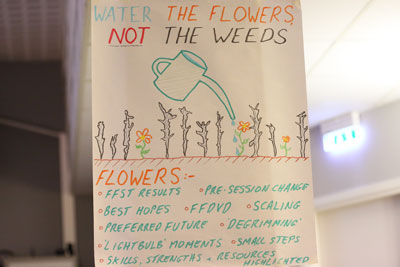 WATER THE FLOWERS,
NOT THE WEEDS
FLOWERS:-
◦ FFST RESULTS ◦ PRE-SESSION CHANGE
◦ BEST HOPES ◦ FFDVD ◦ SCALING
◦ PREFERRED FUTURE ◦ 'DEGRIMMING'
◦ 'LIGHTBULB' MOMENTS ◦ SMALL STEPS
◦ SKILLS, STRENGTHS + RESOURCES
HIGHLIGHTED